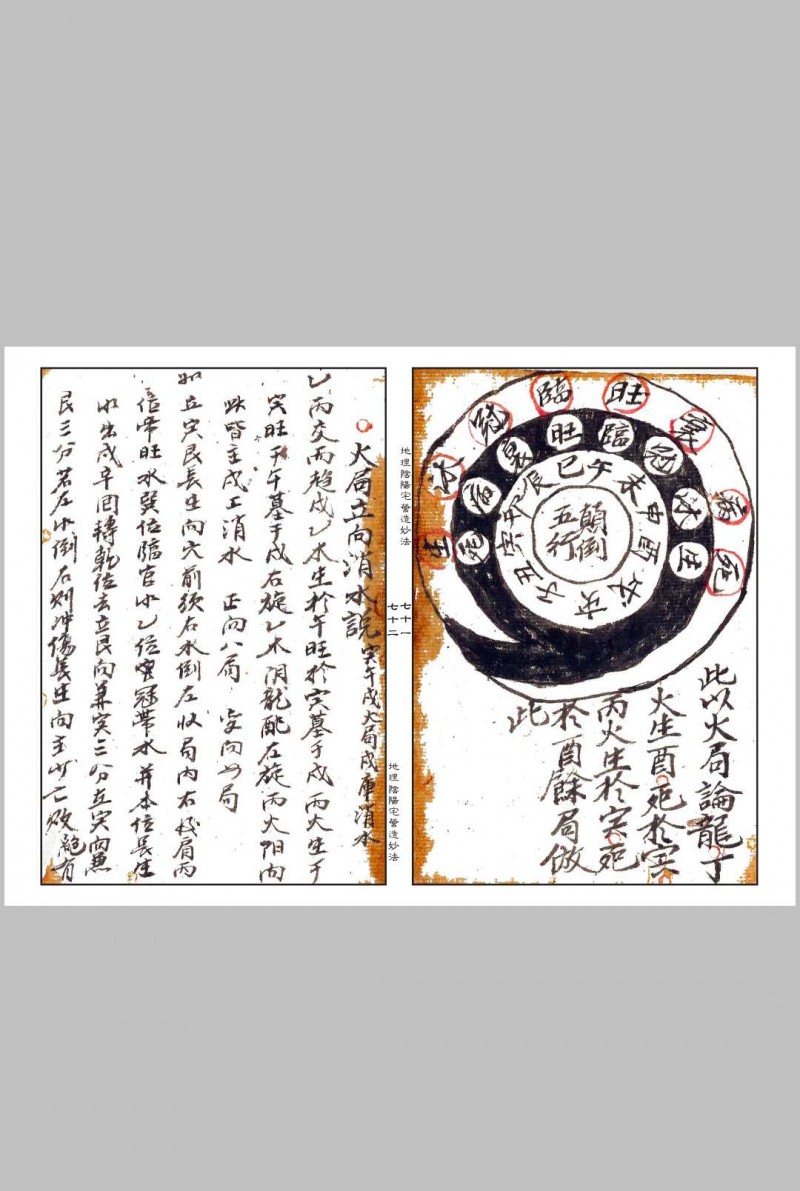 旺
臨
謝
冠
病
沐
死
生
旺
臨
冠
衰
沐
病
生
死
午
未
申
酉
戌
亥
子
丑
寅
卯
辰
巳
顛倒
五行
此以火局論龍丁
火生酉死於寅
丙火生於寅死
於酉餘局倣
此
地理陰陽宅營造妙法
七十一
七十二
地理陰陽宅營造妙法
火局立向消水說 寅午戌火局戌庫消水
乙丙交而趨戌乙木生於午旺於寅墓于戌丙火生于
寅旺于午墓于戌右旋乙木阴龍配左旋丙火阳向
此皆主戌上消水 正向八局 变向四局
如立寅艮長生向穴前须右水倒左收局内右抜局丙
位帝旺水巽位臨官水乙位官冠带水并本位長生
水出戌辛回轉乾位去立艮向兼寅三分立寅向兼
艮三分若左水倒右则冲傷長生向主少亡败絕有